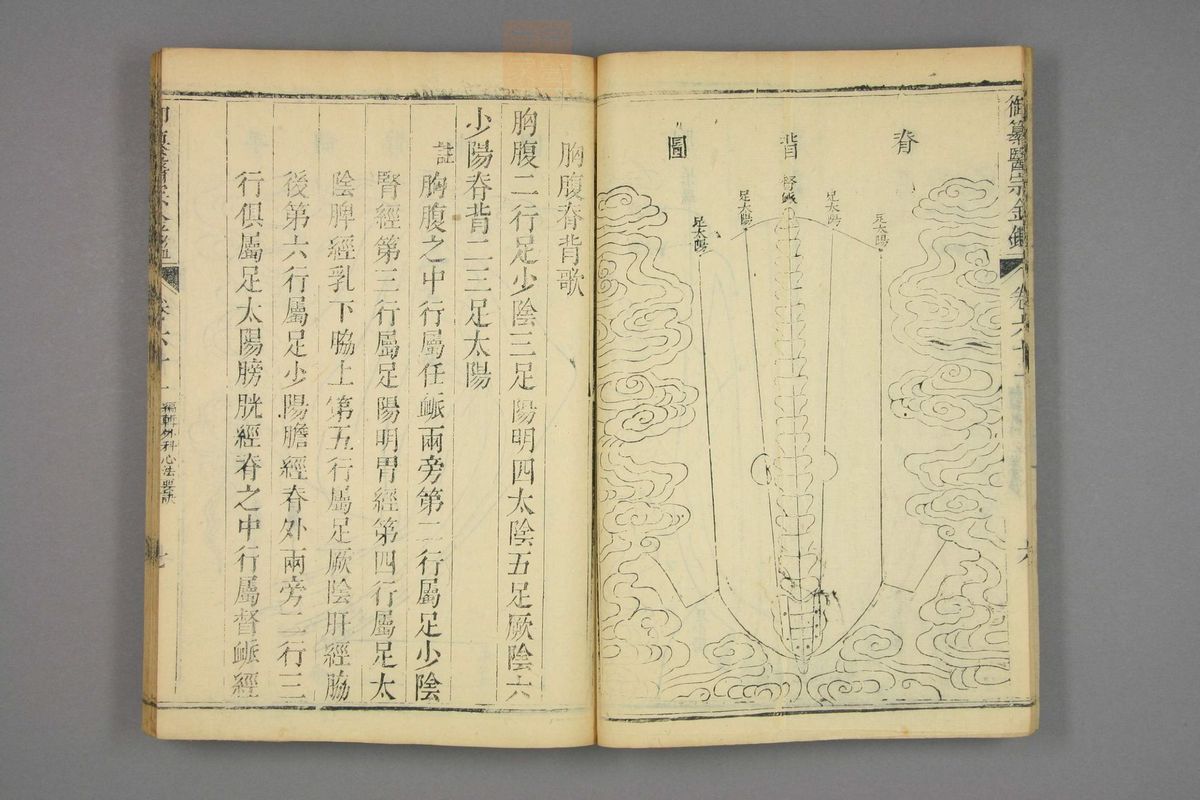 御纂醫宗金鑑
卷六十
六
脊
背
圖
足太陽
足太陽
督脈
足太陽
足太陽
胸腹脊背歌
胸腹二行足少陰三足陽明四太陰五足厥陰六
少陽脊背二三足太陽
註
胸腹之中行屬任脈兩旁第二行屬足少陰
腎經第三行屬足陽明胃經第四行屬足太
陰脾經乳下脇上第五行屬足厥陰肝經脇
後第六行屬足少陽膽經脊外兩旁二行三
行俱屬足太陽膀胱經脊之中行屬督脈經
編輯外科心法要訣
七